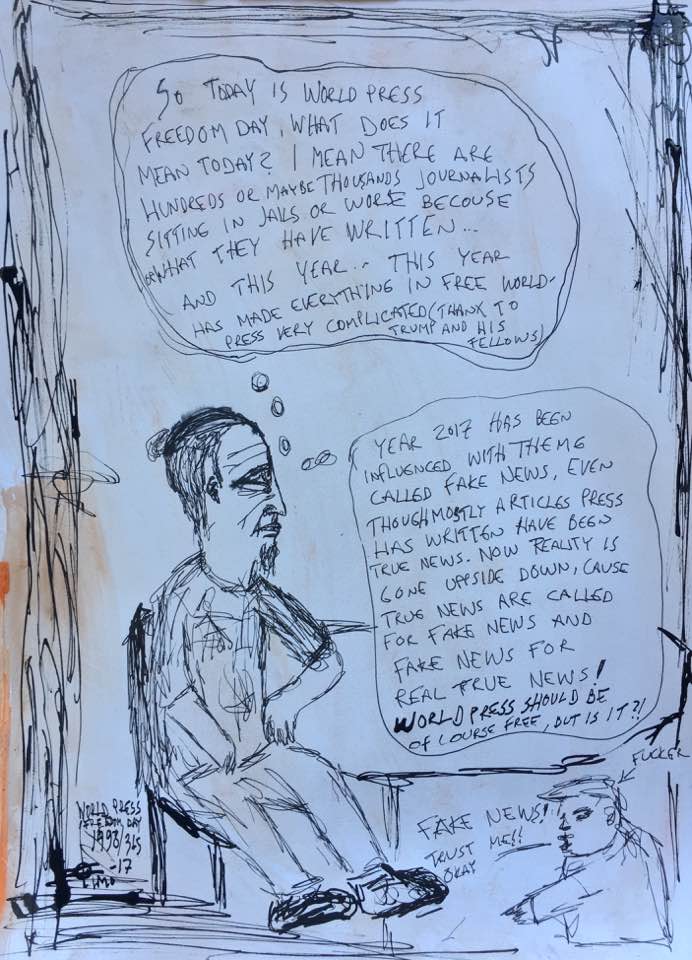 SO TODAY IS WORLD PRESS
FREEDOM DAY, WHAT DOES IT
MEAN TODAY? I MEAN THERE ARE
HUNDREDS OR MAYBE THOUSANDS JOURNALISTS
SITTING IN JAILS OR WORSE BECOUSE
WHAT THEY HAVE WRITTEN...
AND THIS YEAR... THIS YEAR
HAS MADE EVERYTHING IN FREE WORLD-
PRESS VERY COMPLICATED (THANK TO
TRUMP AND HIS
FELLOWS)
YEAR 2017 HAS BEEN
INFLUENCED WITH THEME
CALLED FAKE NEWS, EVEN
THOUGH MOSTLY ARTICLES PRESS
HAS WRITTEN HAVE BEEN
TRUE NEWS. NOW REALITY IS
GONE UPPSIDE DOWN, CAUSE
TRUE NEWS ARE CALLED
FOR FAKE NEWS AND
FAKE NEWS FOR
REAL TRUE NEWS!
WORLD PRESS SHOULD BE
OF COURSE FREE, BUT IS IT?!
FUCKER
FAKE NEWS!
TRUST ME!!
OKAY
WORLD PRESS
FREEDOM DAY
1993/3/5
-17